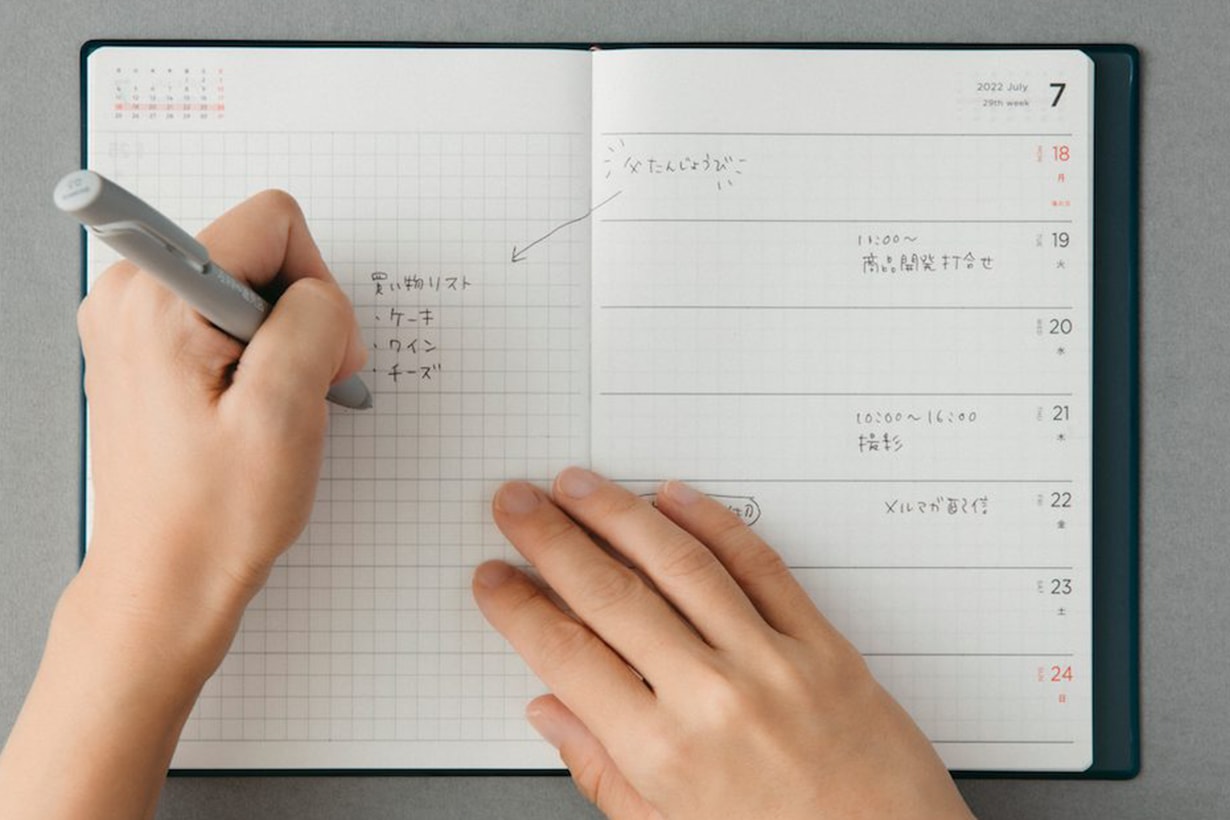 買い物リスト
・ケーキ
・ワイン
・チーズ
2022 July
29th week
7
父たんじょうび
18
月
海の日
11:00〜
商品開発打合せ
19
火
20
水
10:00〜16:00
撮影
21
木
メルマガ配信
22
金
23
土
24
日